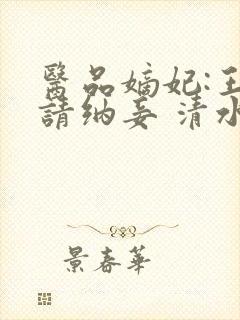 醫品嫡妃:王
請納妾 清水
景春華